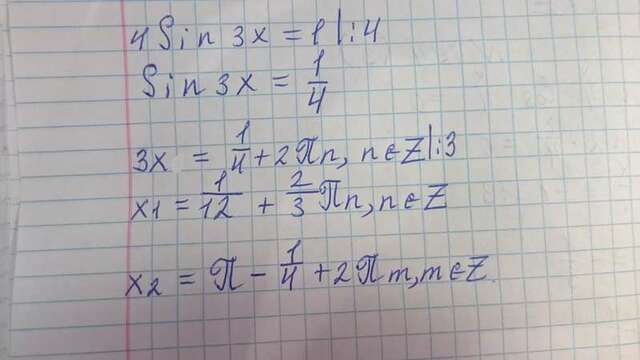 4 Sin 3x = 1 |:4
Sin 3x = 1/4
3x = 1/4 + 2πn, n∈Z |:3
x1 = 1/12 + 2/3 πn, n∈Z
x2 = π - 1/4 + 2πm, m∈Z